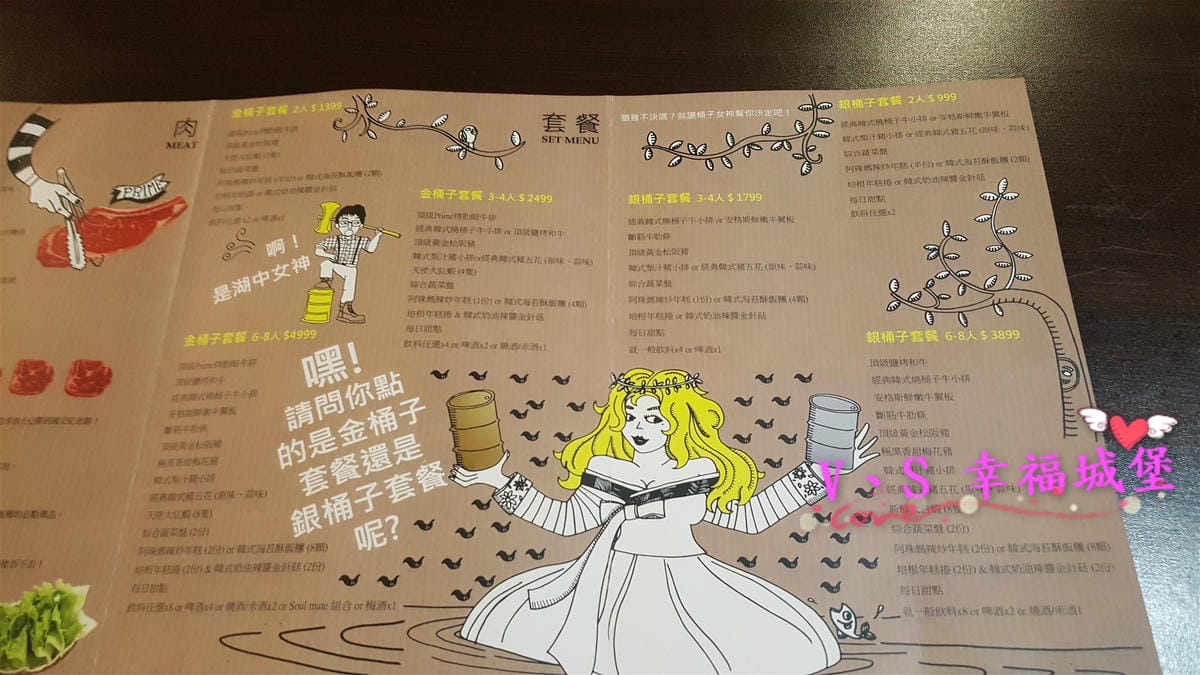 肉
MEAT
PRIME
金桶子套餐 2人 $1399
頂級Prime烤肋眼牛排
頂級黃金松阪豬
天使大紅蝦 (2隻)
綜合蔬菜盤
阿珠媽辣炒年糕 (半份) or 韓式海苔酥飯糰 (2顆)
培根年糕捲 or 韓式奶油辣醬金針菇
每日甜點
飲料任選 x2 or 啤酒x1
套餐
SET MENU
金桶子套餐 3-4人 $2499
頂級Prime烤肋眼牛排
經典韓式燒桶子牛小排 or 頂級鹽烤和牛
頂級黃金松阪豬
韓式梨汁豬小排or經典韓式豬五花 (原味、蒜味)
天使大紅蝦 (4隻)
綜合蔬菜盤
阿珠媽辣炒年糕 (1份) or 韓式海苔酥飯糰 (4顆)
培根年糕捲 & 韓式奶油辣醬金針菇
每日甜點
飲料任選x4 or 啤酒x2 or 燒酒/米酒x1
猶豫不決嗎？就讓桶子女神幫你決定吧！
銀桶子套餐 3-4人 $1799
經典韓式燒桶子牛小排 or 安格斯鮮嫩牛翼板
斷筋牛肋條
頂級黃金松阪豬
韓式梨汁豬小排 or 經典韓式豬五花 (原味、蒜味)
綜合蔬菜盤
阿珠媽辣炒年糕 (1份) or 韓式海苔酥飯糰 (4顆)
培根年糕捲 or 韓式奶油辣醬金針菇
每日甜點
就一般飲料x4 or 啤酒x1
銀桶子套餐 2人 $999
經典韓式燒桶子牛小排 or 安格斯鮮嫩牛翼板
韓式梨汁豬小排 or 經典韓式豬五花 (原味、蒜味)
綜合蔬菜盤
阿珠媽辣炒年糕 (半份) or 韓式海苔酥飯糰 (2顆)
培根年糕捲 or 韓式奶油辣醬金針菇
每日甜點
飲料任選x2
啊！
是湖中女神
金桶子套餐 6-8人 $4999
頂級Prime烤肋眼牛排
頂級鹽烤和牛
經典韓式燒桶子牛小排
安格斯鮮嫩牛翼板
斷筋牛肋條
頂級黃金松阪豬
極黑香甜梅花豬
韓式梨汁豬小排
經典韓式豬五花 (原味、蒜味)
天使大紅蝦 (8隻)
綜合蔬菜盤 (2份)
阿珠媽辣炒年糕 (2份) or 韓式海苔酥飯糰 (8顆)
培根年糕捲 (2份) & 韓式奶油辣醬金針菇 (2份)
每日甜點
飲料任選x8 or 啤酒x4 or 燒酒/米酒x2 or Soul mate 組合 or 梅酒x1
嘿!
請問你點
的是金桶子
套餐還是
銀桶子套餐
呢?
銀桶子套餐 6-8人 $3899
頂級鹽烤和牛
經典韓式燒桶子牛小排
安格斯鮮嫩牛翼板
斷筋牛肋條
頂級黃金松阪豬
極黑香甜梅花豬
韓式梨汁豬小排
經典韓式豬五花 (原味、蒜味)
(8隻)
綜合蔬菜盤 (2份)
阿珠媽辣炒年糕 (2份) or 韓式海苔酥飯糰 (8顆)
培根年糕捲 (2份) & 韓式奶油辣醬金針菇 (2份)
每日甜點
就一般飲料x8 or 啤酒x2 or 燒酒/米酒1
V、S 幸福城堡